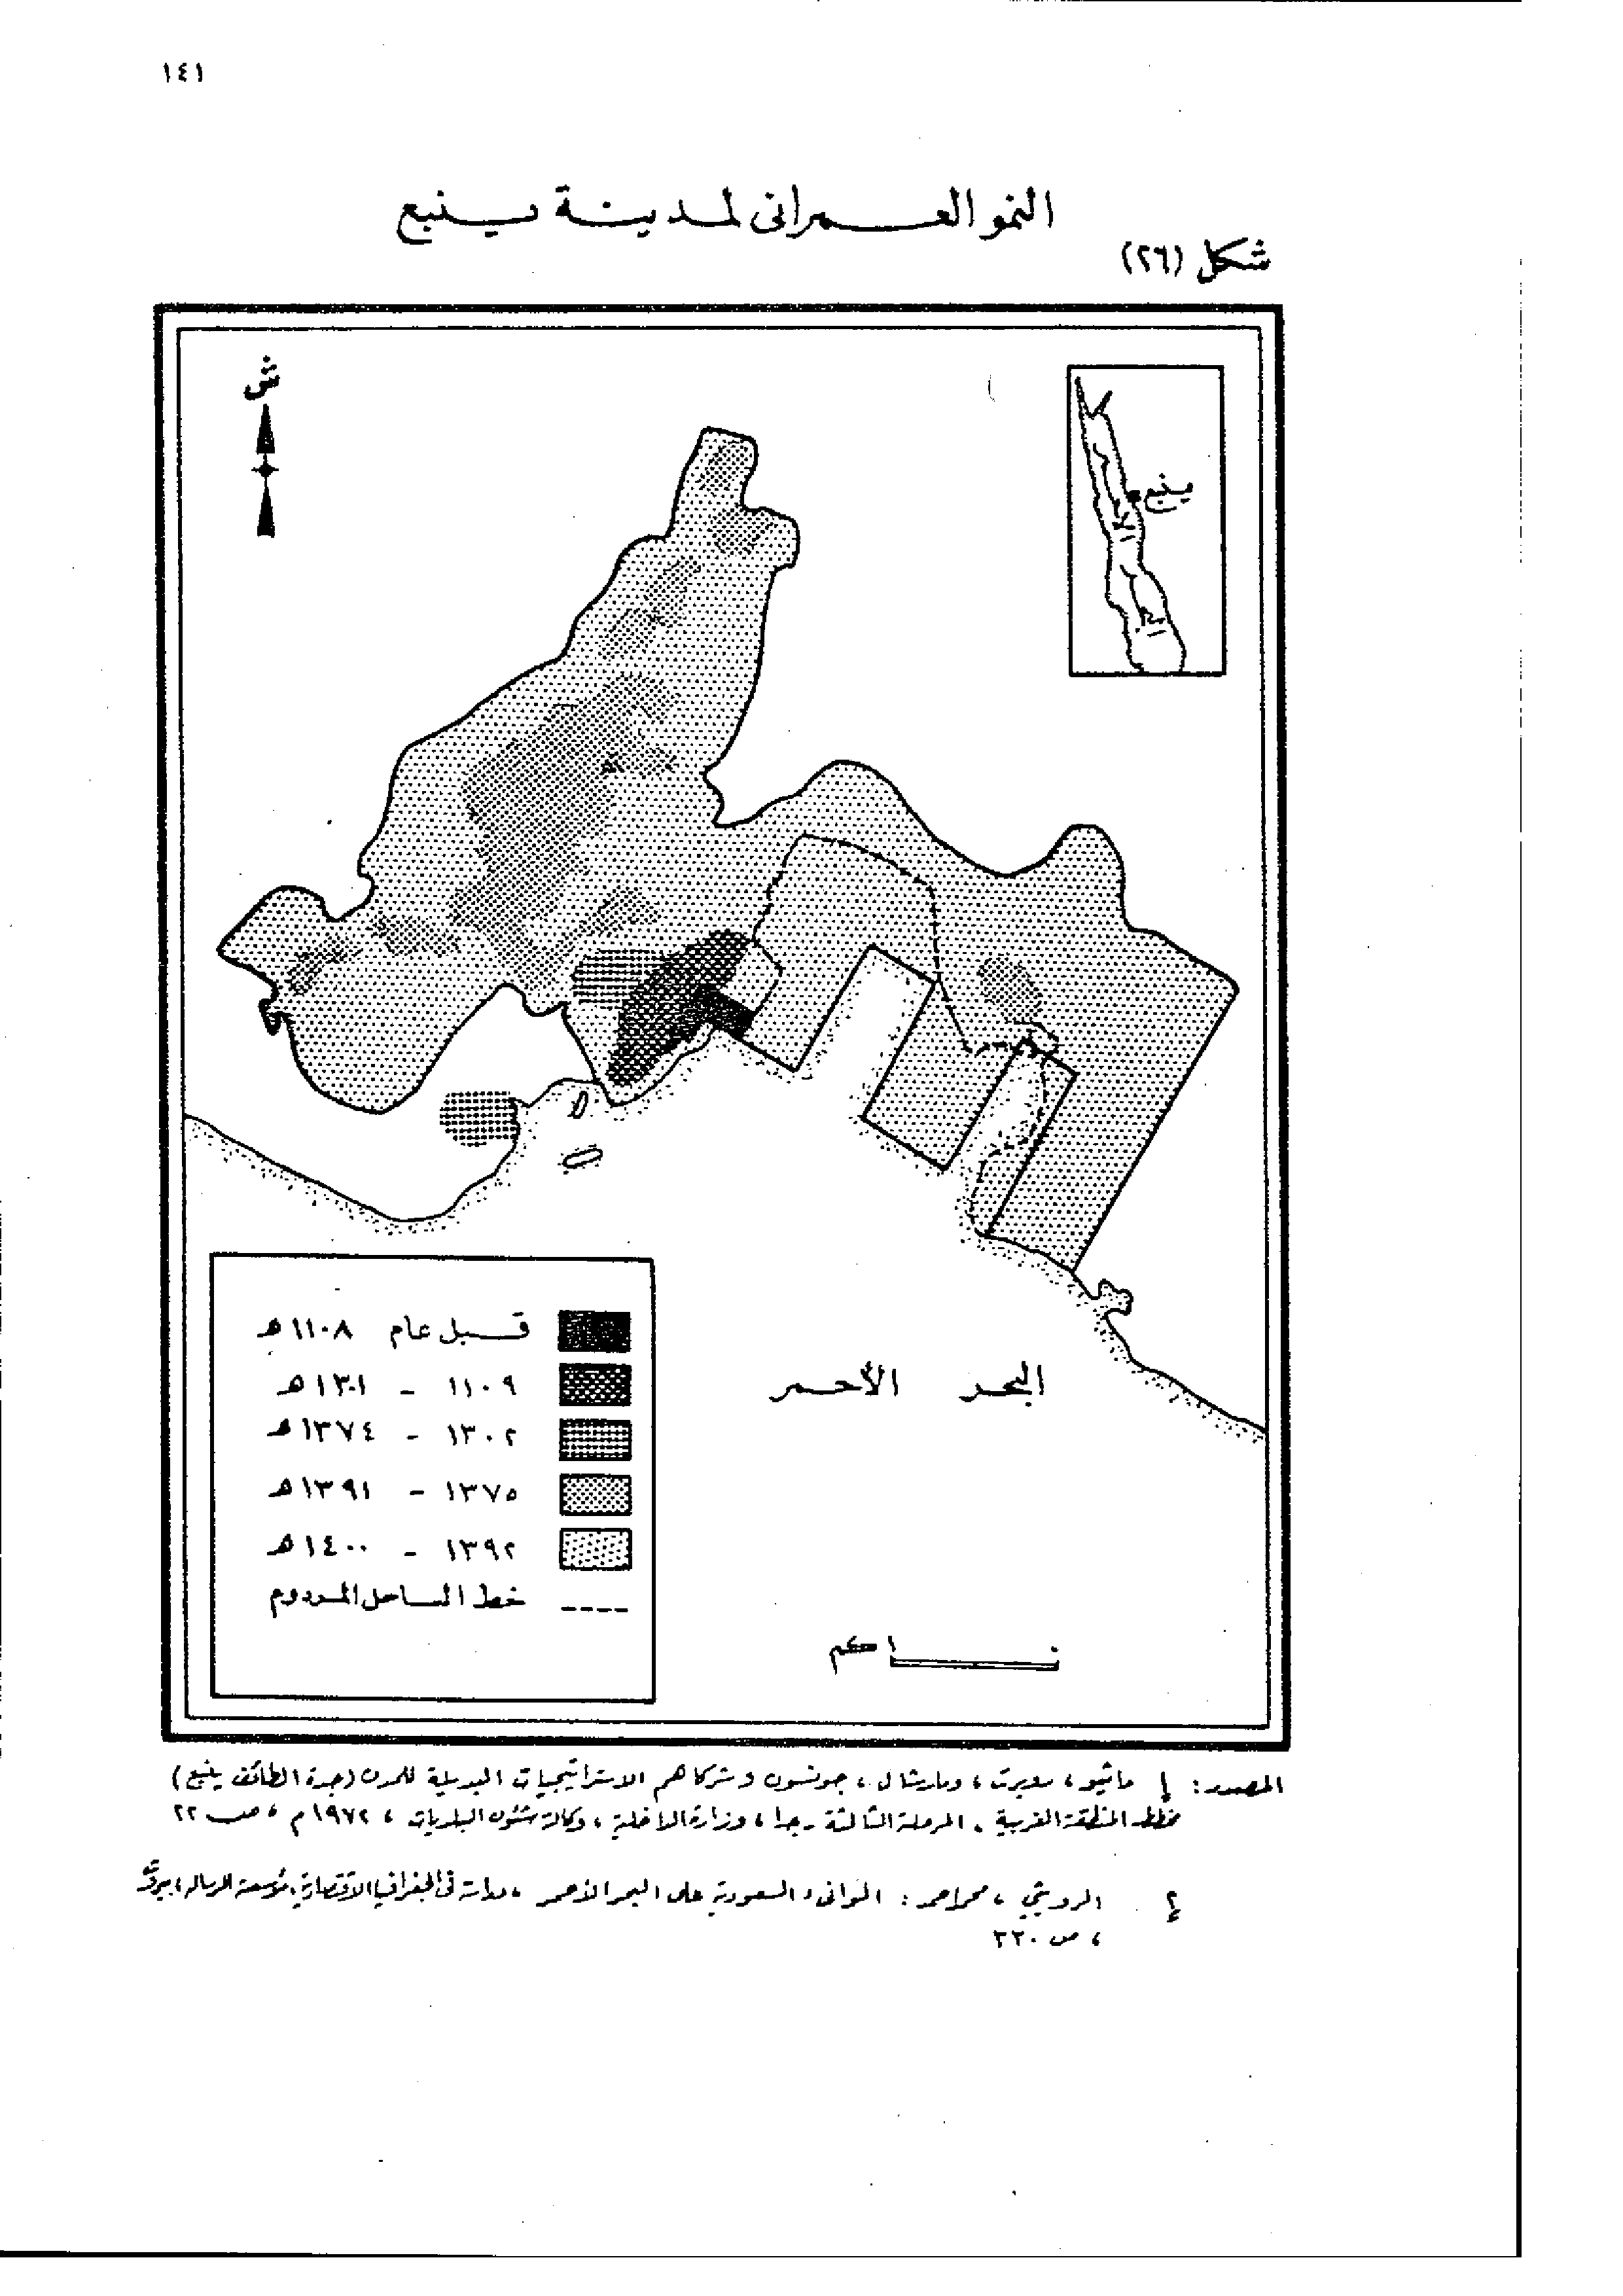 ١٤١
النمو العمرانى لمدينة ينبع
شكل (٢٦)
ش
ينبع
قبل عام ١١٠٨ هـ
١١٠٩ - ١٣٠١ هـ
١٣٠٢ - ١٣٧٤ هـ
١٣٧٥ - ١٣٩١ هـ
١٣٩٢ - ١٤٠٠ هـ
خط الساحل المردوم
البحر الأحمر
٠ ١ كم
المصدر: ١ ماثيو، روبرت، ومارشال، جونسون وشركاهم الاستراتيجيات البديلة للمدن (جدة الطائف ينبع)
مخطط المنطقة الغربية، المرحلة الثالثة، وزارة الداخلية، وكالة شئون البلديات، ١٩٧٢ م، ص ٢٢
٢ الرويثي، محمد احمد: الموانىء السعودية على البحر الأحمر، دراسة فى الجغرافيا الاقتصادية، مؤسسة الرسالة، بيروت
، ص ٢٣٠